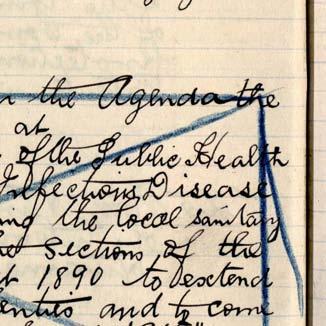 the Agenda the
at
of the Public Health
Infectious Disease
the local sanitary
Sections of the
1890 to extend
and to come